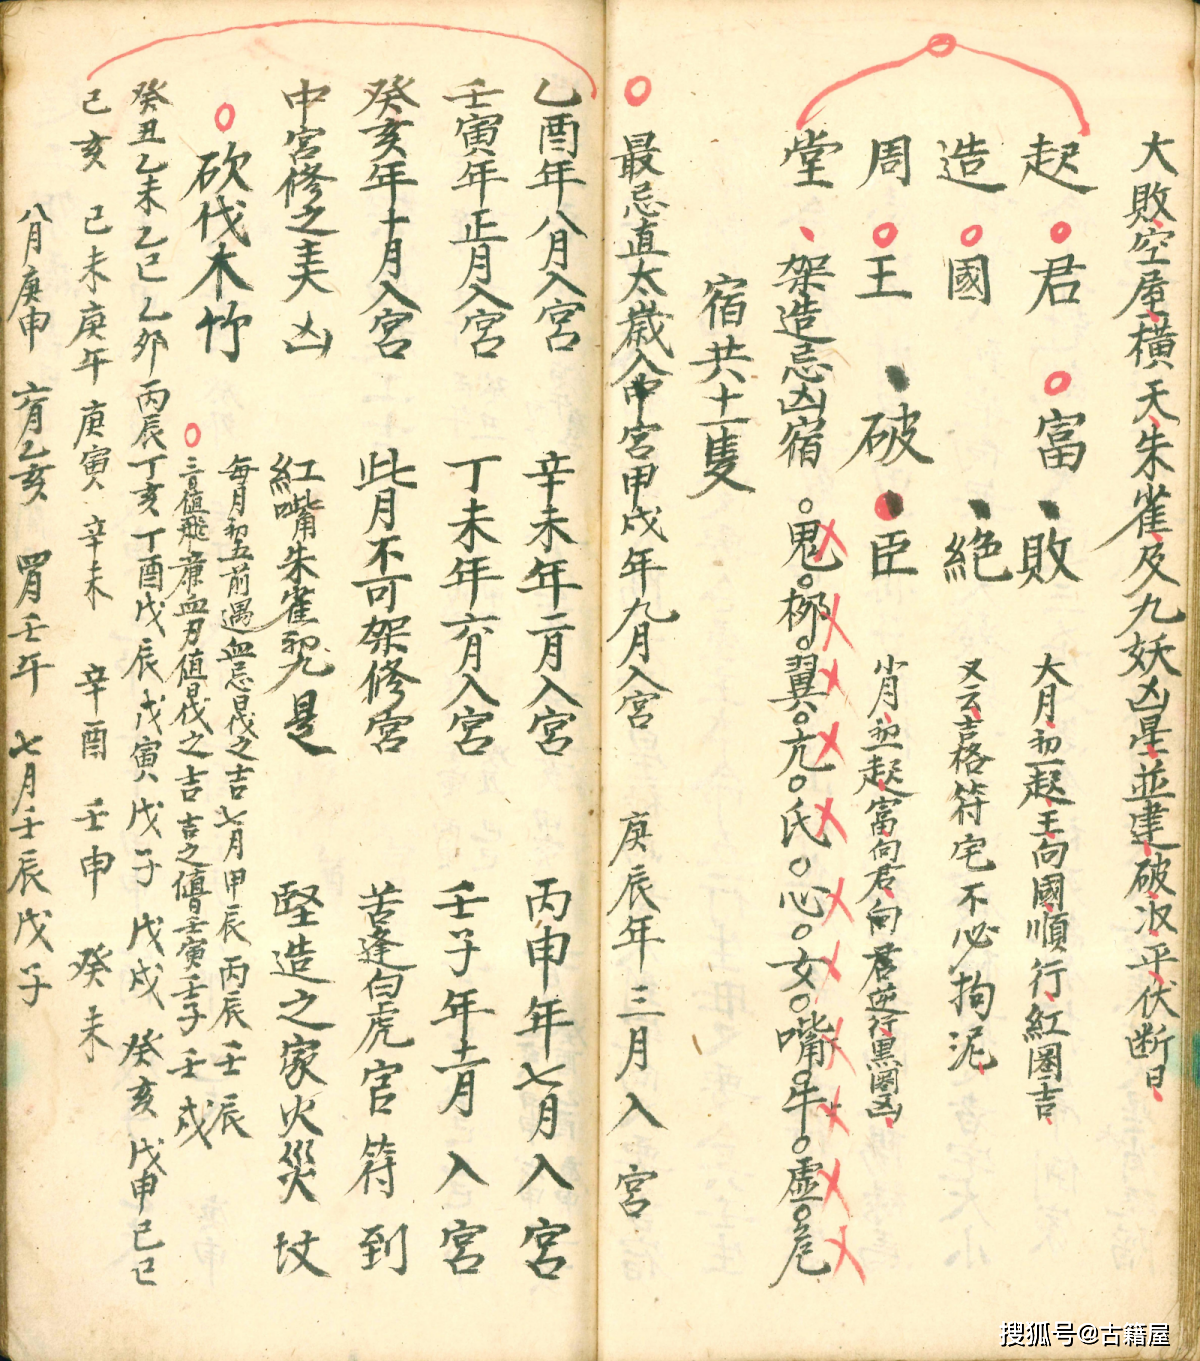 大敗空屋横天朱雀及九妖凶星並建破収平伏断日
起君富敗 大月初一起王向國順行紅圏吉
造國絶 又云吉格符宅不必拘泥
周王破臣 小月初一起富向君向君逆行黒圏凶
堂架造忌凶宿 鬼柳翼亢氐心女嘴牛虚危
宿共十一隻
最忌直太歲入中宮甲戌年九月入宮 庚辰年三月入宮
乙酉年八月入宮 辛未年二月入宮 丙申年七月入宮
壬寅年正月入宮 丁未年六月入宮 壬子年十一月入宮
癸亥年十月入宮 此月不可架修宮 苦逢白虎官符到
中宮修之主大凶 紅嘴朱雀 是 竪造之家火災坟
砍伐木竹 每月初五前遇血忌伐之吉七月甲辰丙辰壬辰
值飛廉血刃值日伐之吉 吉之 壬寅壬子壬戌
癸丑乙未乙巳乙卯丙辰丁亥丁酉戊辰戊寅戊子戊戌癸亥戊申己巳
己亥己未庚午庚寅辛未辛酉壬申癸未
八月庚申 六月乙亥 四月壬午 七月壬辰戊子
搜狐号@古籍屋